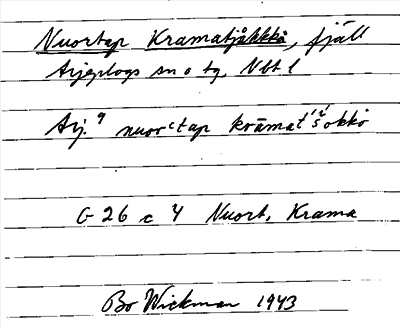 Nuortap Kramatjåkkå, fjäll
Arjeplogs sn o tg, Nbt l
Arj. 9 nuorꞌtap krāmatꞌšokkō
G 26 c 4 Nuort. Krama
Bo Wickman 1943